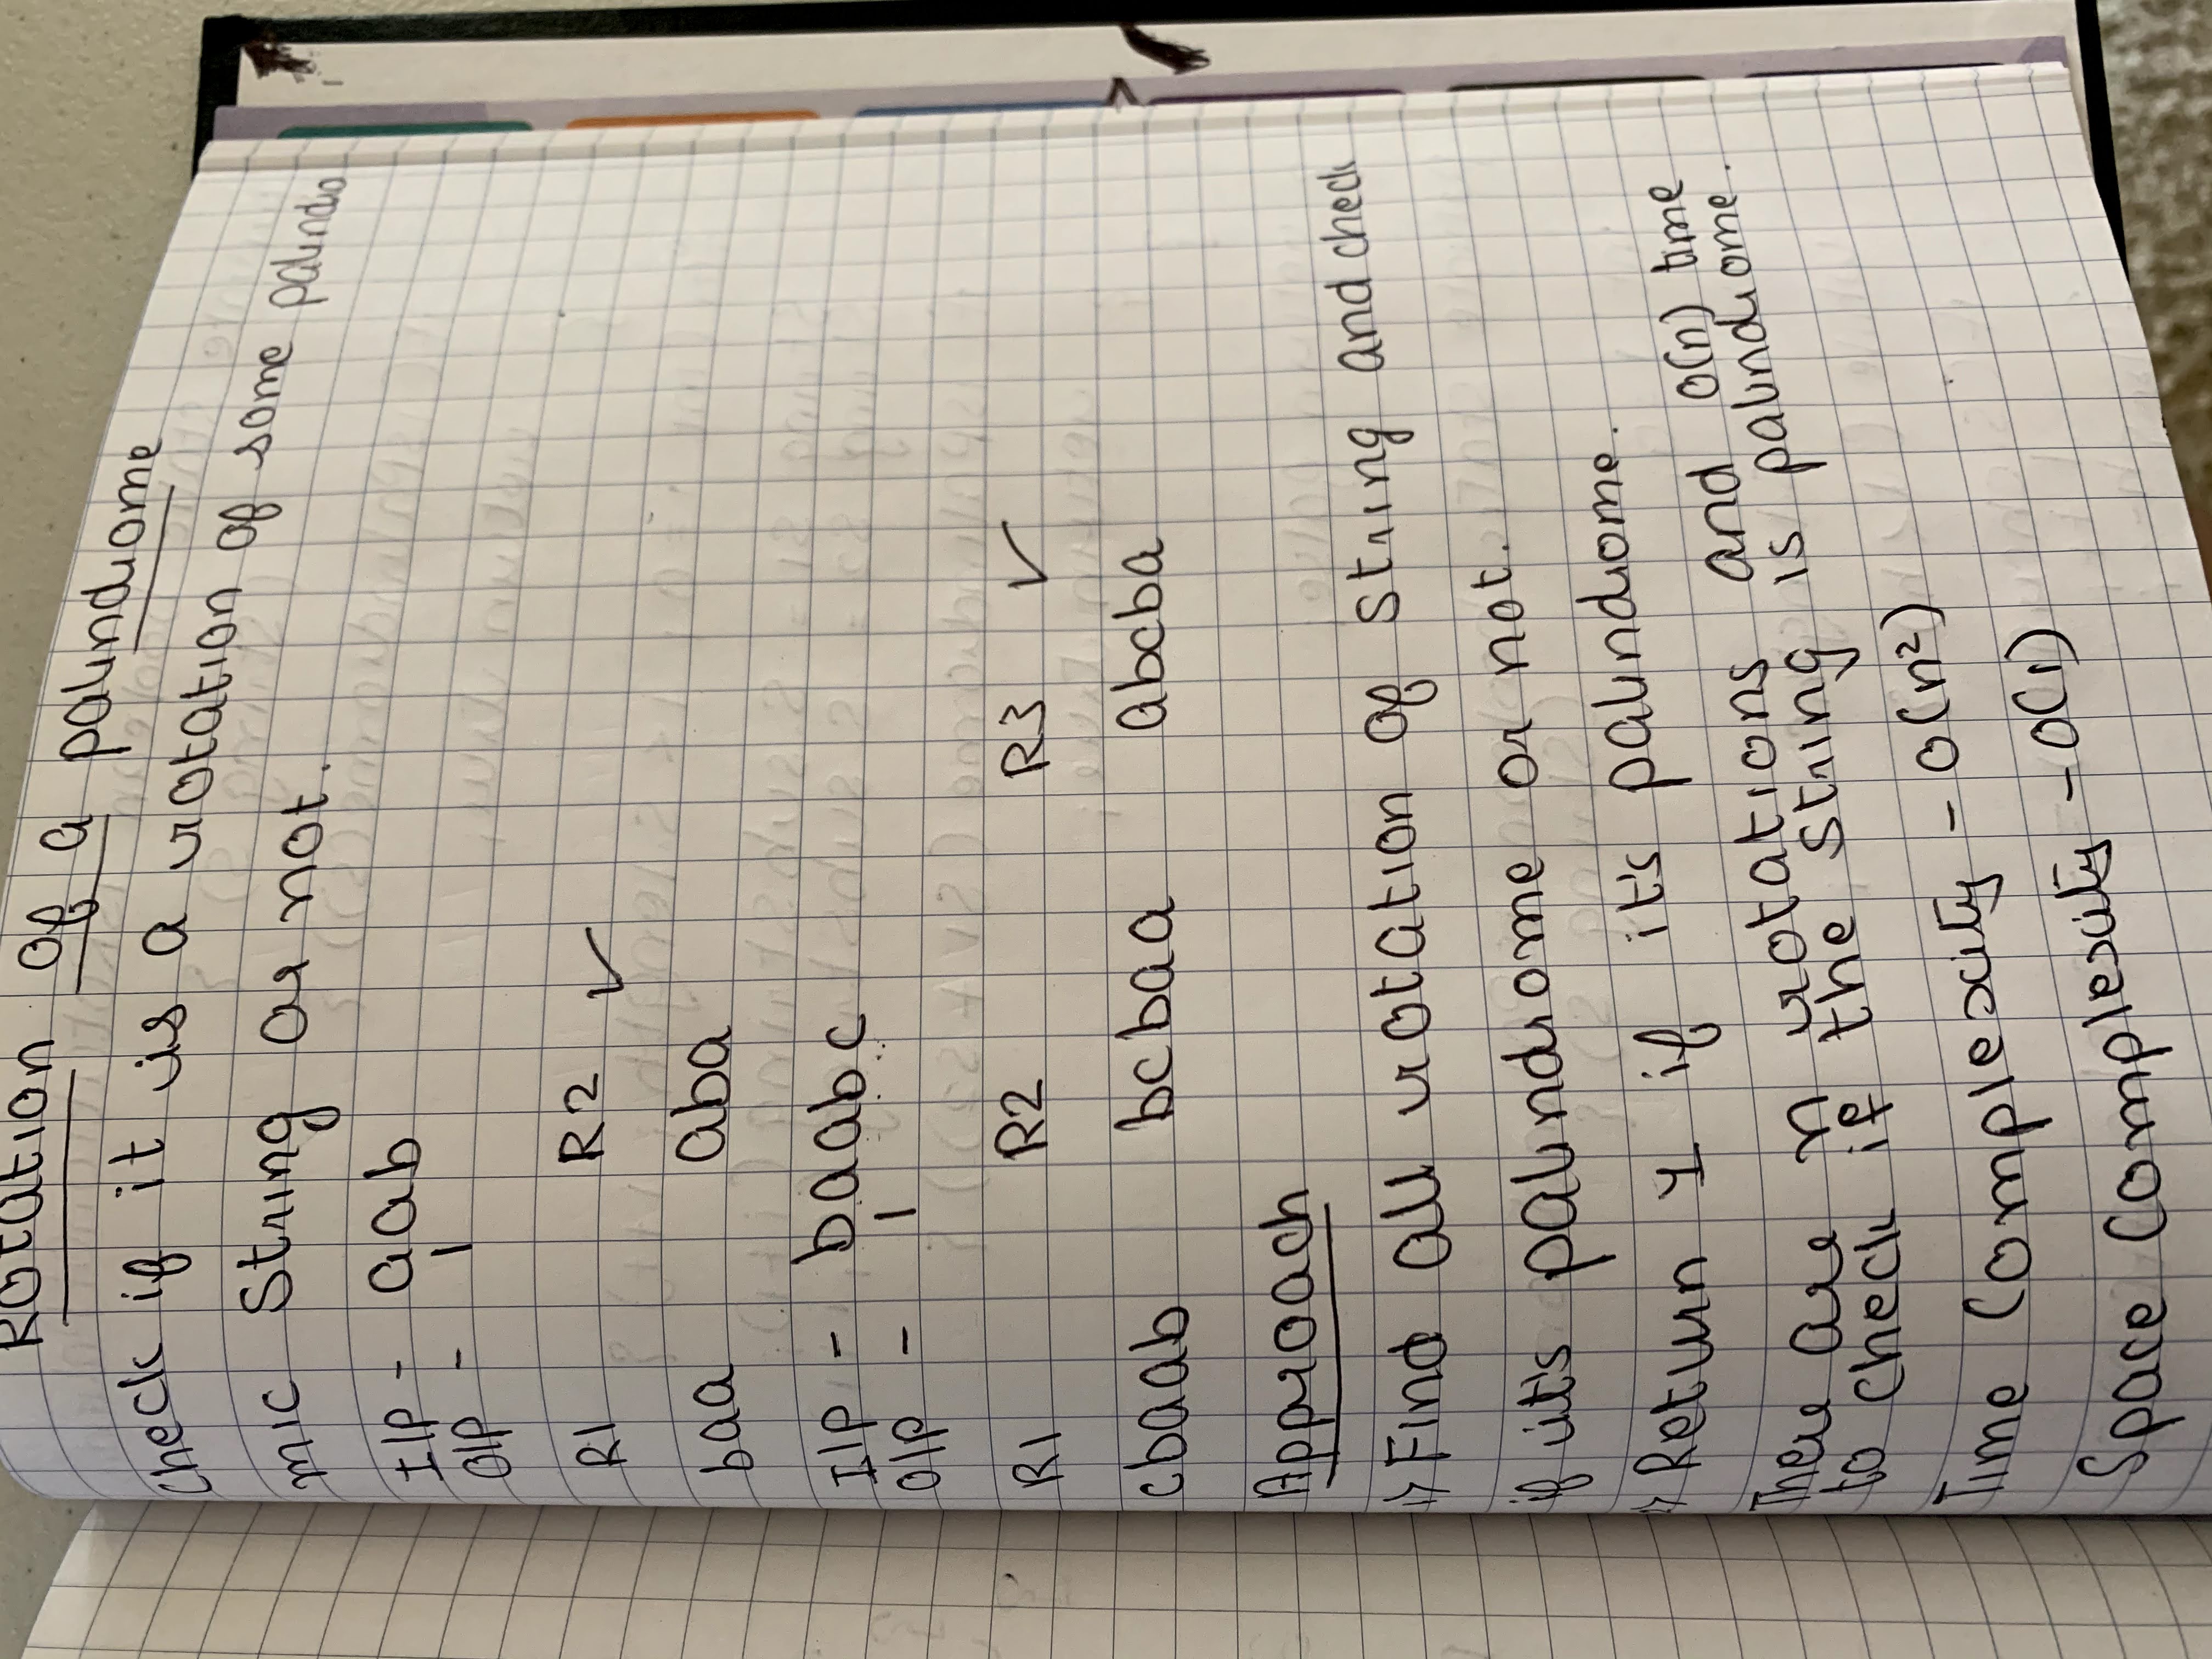 Rotation of a palindrome
Check if it is a rotation of some palindro
mic String or not.
I/P - aab
O/P - 1
R1 R2 ✓
baa aba
I/P - baabc
O/P - 1
R1 R2 R3 ✓
cbaab bcbaa abcba
Approach
1> Find all rotation of string and check
if it's palindrome or not.
> Return 1 if it's palindrome.
There are n rotations and O(n) time
to check if the string is palindrome.
Time Complexity - O(n²)
Space Complexity - O(1)